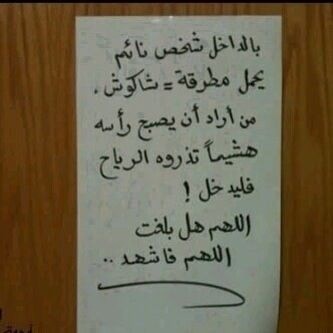 بالداخل شخص نائم
يحمل مطرقة = شاكوش .
من أراد أن يصبح رأسه
هشيماً تذروه الرياح
فليدخل !
اللهم هل بلغت
اللهم فاشهد ..